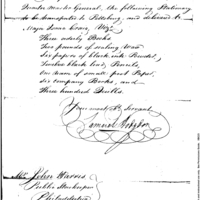 Quarter Master General, the following Stationary
to be transported to Pittsburg, and delivered to
Major Isaac Craig, Viz.
Three orderly Books
Two pounds of sealing Wax
Six papers of black ink Powder,
Twelve black lead, Pencils,
One ream of small post Paper,
Six Company Books, and
Three hundred Quills.
Your most Ob. Servant
Samuel Hodgdon
Mr. John Harris
Public Storekeeper
Philadelphia